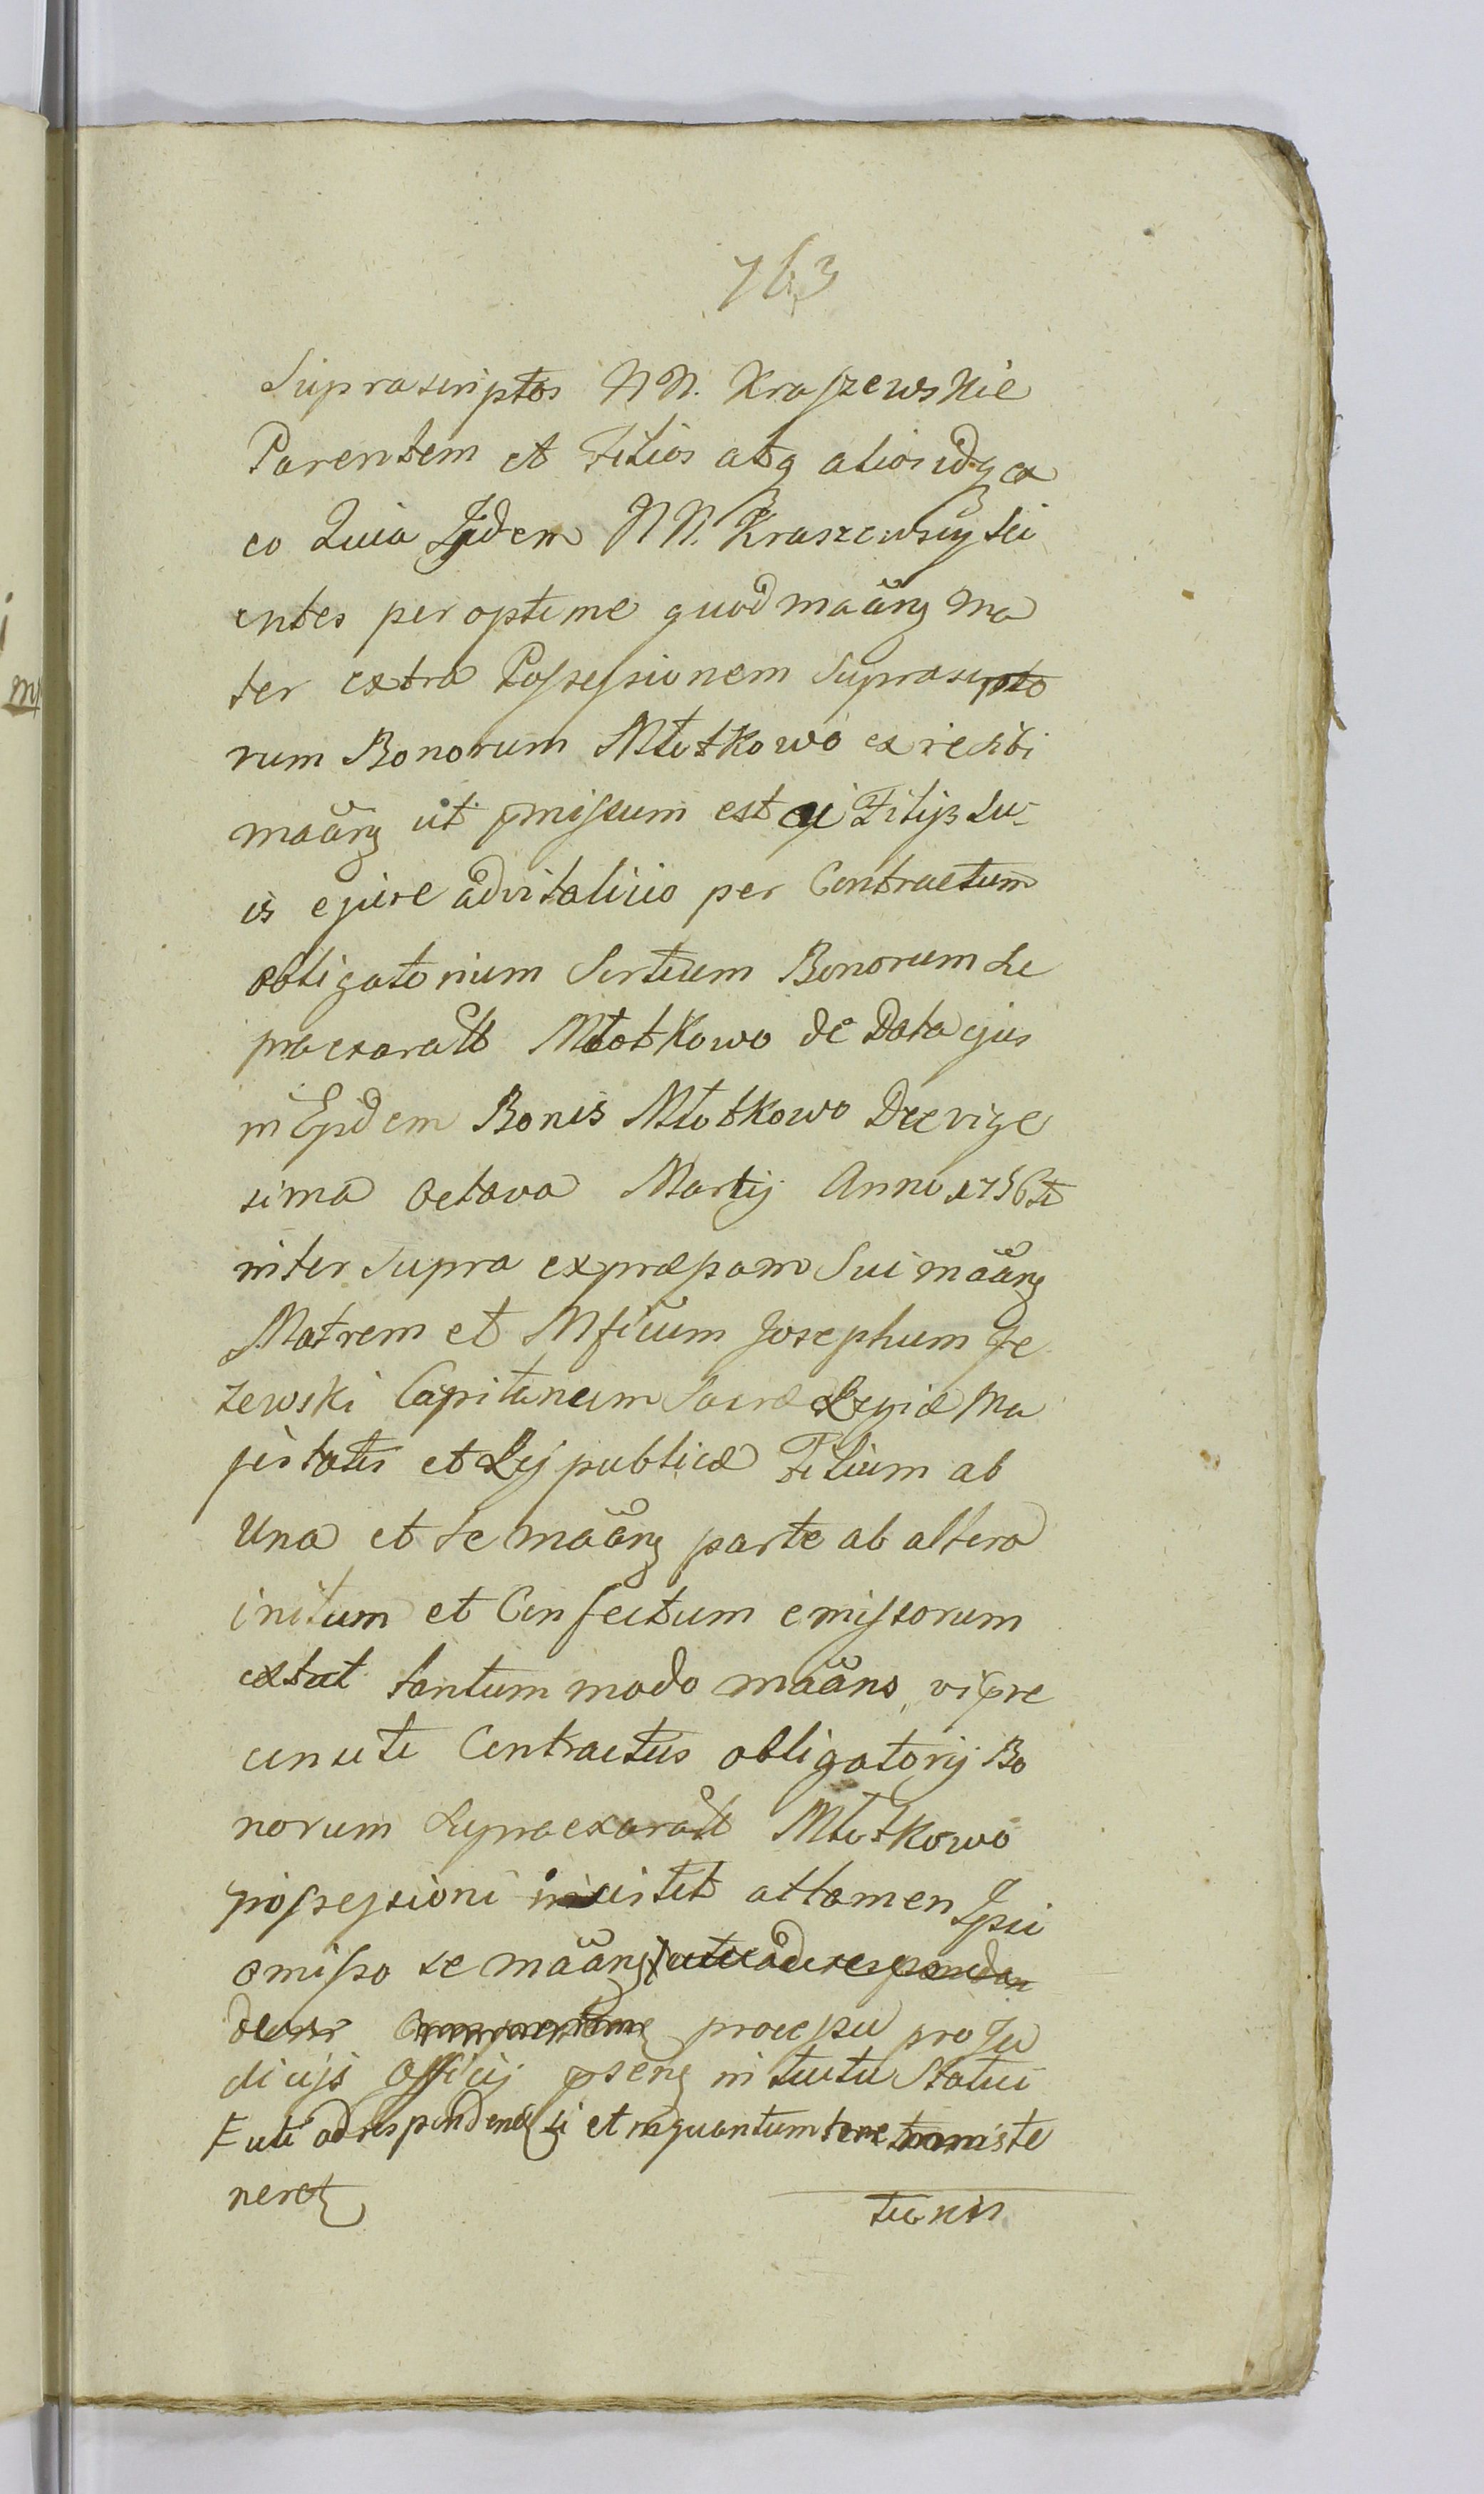 763
Suprascriptos NN. Kraszewskie
Parentem et Filios atq alios idq ex
eo Quia Ijdem NN. Kraszewscy sci
entes per optime quod maãnq Ma
ter extra Possessionem Suprascripto
rum Bonorum Młotkowo ex re sibi
maãnq ut pmissum est Filijs su
is e jure advitalicio per Contractum
obligatorium Sortium Bonorum Su
praexaratt Młotkowo de Data ejus
in Eisdem Bonis Młotkowo Die vige
sima octava Martij Anni 1756ti
inter supra expressam Sui maãnq
Matrem et Mficum Josephum Je
zewski Capitaneum Sacræ Regiæ Ma
jestatis et Reipublicæ Filium ab
Una et se maãnq parte ab altera
initum et Confectum emissorum
extat tantum modo maãns, vi præ
censiti Contractus obligatorij Bo
norum Supraexaratt Młotkowo
possessioni insistit attamen Ipsi
omisso se maãnq uti ad respondend
processu pro Ju
dicijs Officij psenq intuitu Statui
uti ad respondend si et inquantum te
neretq
tionis